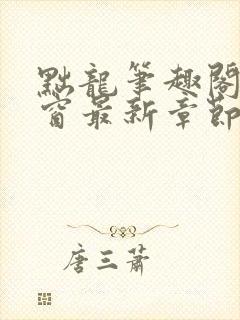 點龍筆趣閣
窗最新章節
唐三蕭